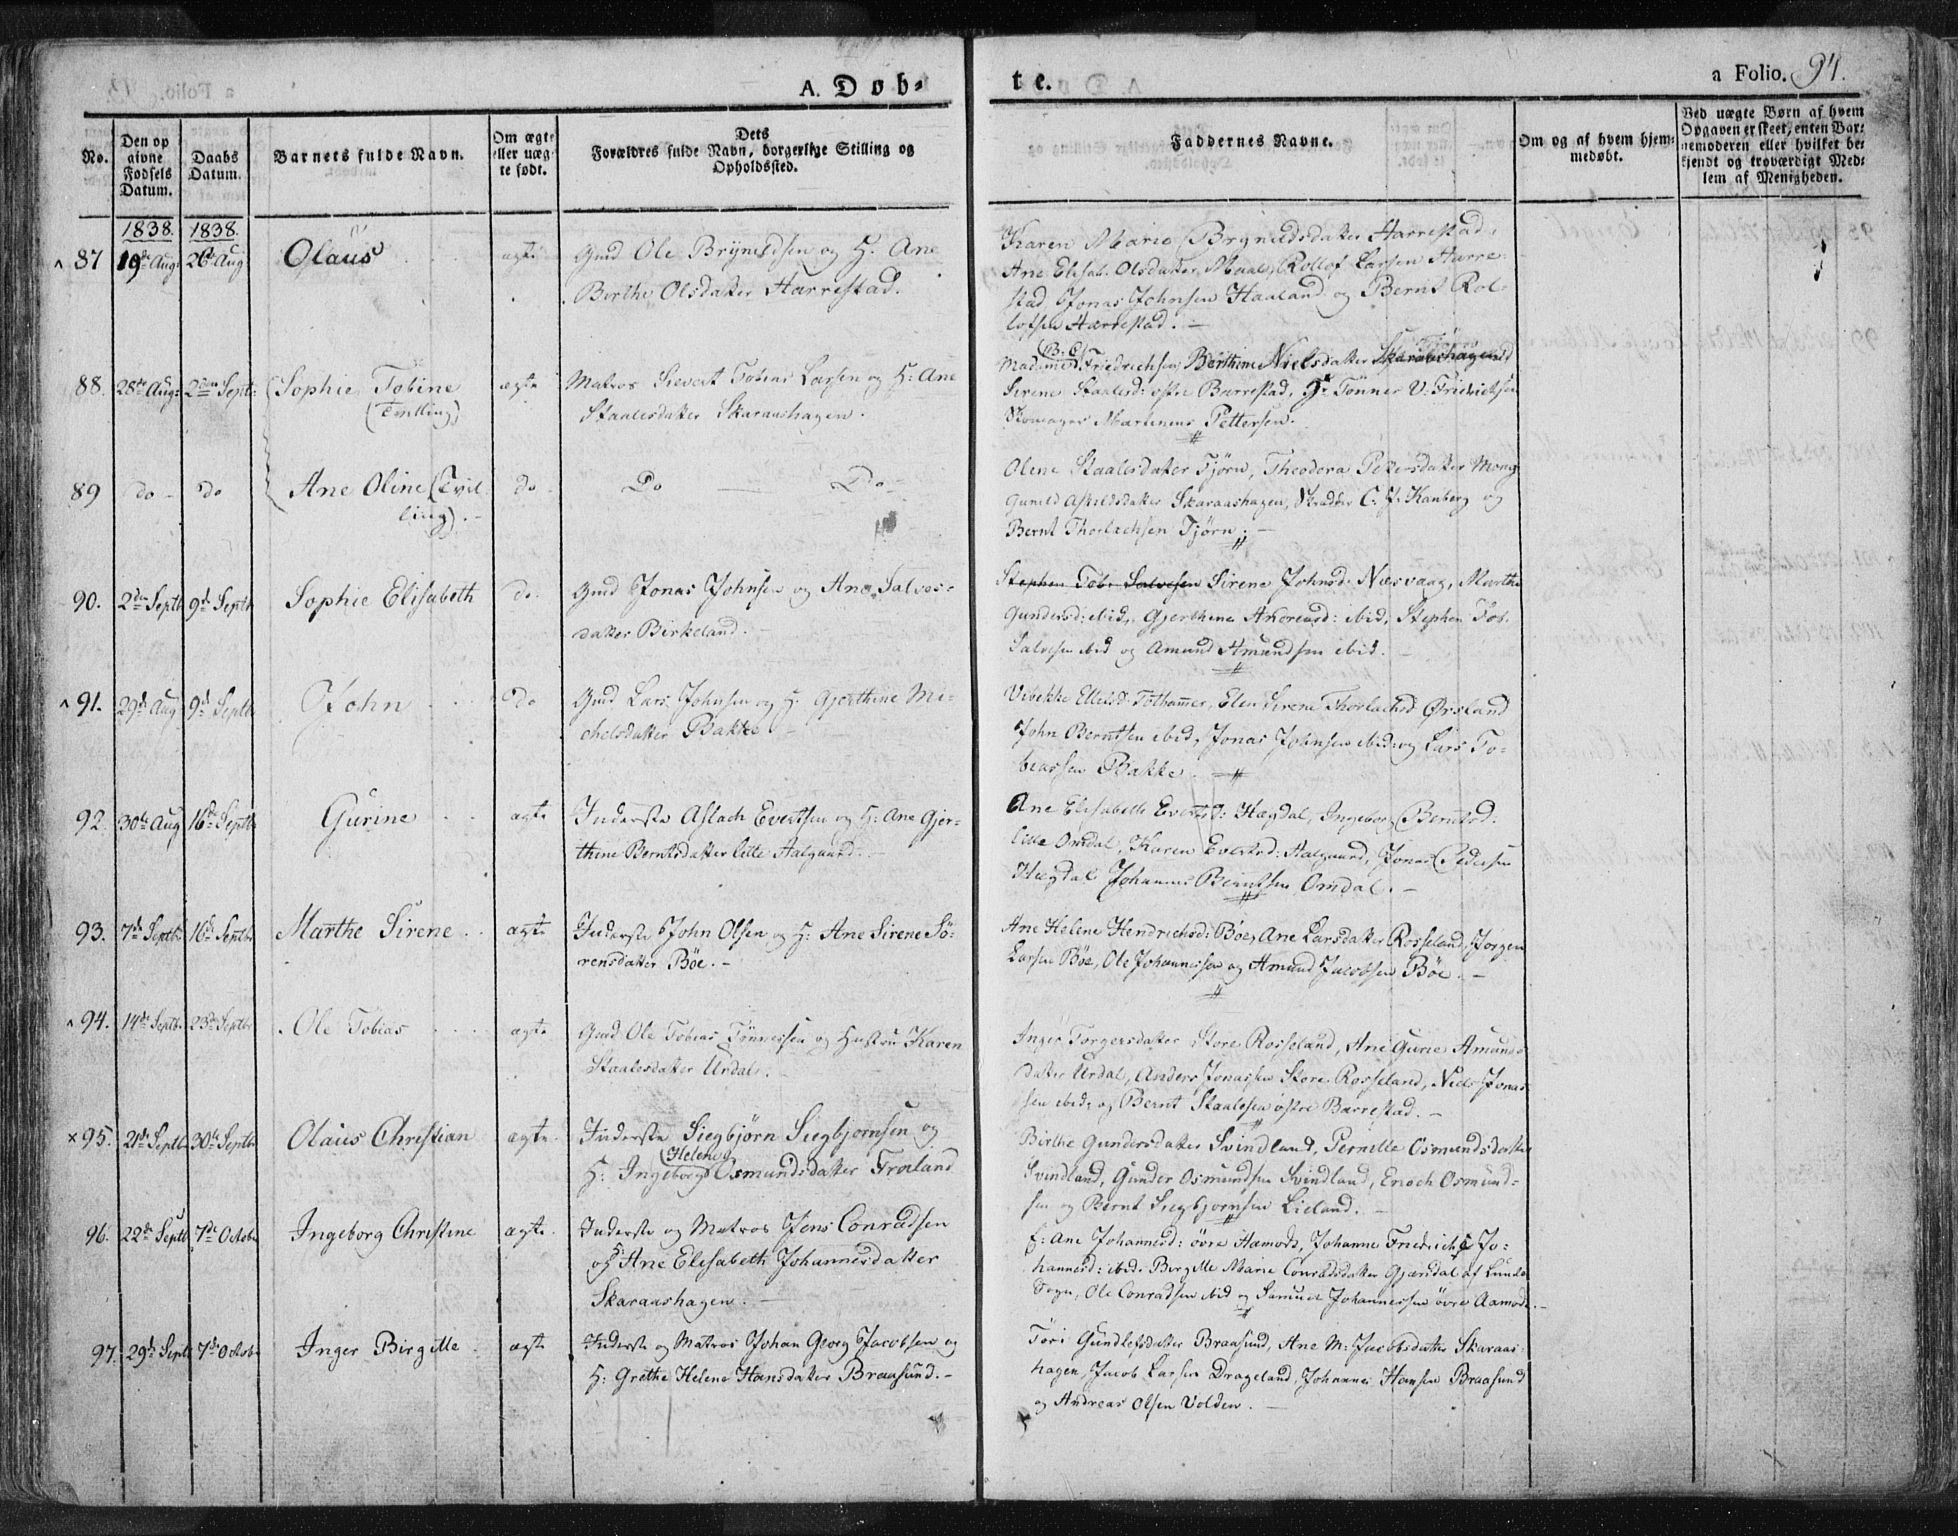 A. Døb-
te.
a Folio. 94.
No.
Den op
givne
Fødsels
Datum.
Daabs
Datum.
Barnets fulde Navn.
Om ægte
eller uæg-
te født.
Dets
Forældres fulde Navn, borgerlige Stilling og
Opholdssted.
Faddernes Navne.
Om og af hvem hjem-
medøbt.
Ved uægte Børn af hvem
Opgaven er skeet, enten Bar-
nemoderen eller hvilket be-
kjendt og troværdigt Med-
lem af Menigheden.
1838. 1838.
87 19de Aug: 26de Aug Olaus ægte Gmd Ole Brynildsen og H. Ane
Birthe Olsdatter Harrestad.
Karen Marie Brynildsdatter Harrestad,
Ane Elisab. Olsdatter Maal, Rollof Larsen Harre-
stad, Jonas Johnsen Haaland og Bernt Rol-
lofsen Harrestad. -
88. 28de Aug: 2den Sept: Sophie Tobine ægte Matros Sievert Tobias Larsen og H: Ane
(Tvilling) Staalesdatter Skaraashagen.
Madame (B. C.) Friedrichsen, Berthine Nielsdatter Skaraashagen
Sirene Staalesd: østre Barrestad, Hr Tønner V. Friedrichsen
Skomager Martinius Pettersen.
89 do - do Ane Oline (Tvil- do Do — Do -
ling). -
Olene Staalesdatter Tjørn, Theodora Petersdatter Mong
Gunild Askildsdatter Skaraashagen, Skrædder C. J. Kanberg og
Bernt Thorlachsen Tjørn. -
90. 2den Septb 9de Septb Sophie Elisabeth do. Gmd Jonas Johnsen og Ane Salves-
datter Birkeland.
Stephen Tob. Salvesen Sirene Johnsd: Næsvaag, Marthe
Gundersd: ibid, Gjerthine Andreasd: ibid, Stephen Tob.
Salvesen ibid og Amund Amundsen ibid.
91. 29de Aug 9de Septb John do Gmd Lars Johnsen og H. Gjerthine Mi-
chelsdatter Bakke -
Vibekke Ellefsd: Tothammer, Elen Sirene Thorlachsd Ørsland
John Berntsen ibid, Jonas Johnsen ibid: og Lars To-
biassen Bakke.
92. 30te Aug 16de Septb Gurine ægte Inderste Aslach Evertsen og H: Ane Gjer-
thine Berntsdatter lille Aalgaard. -
Ane Elisabeth Evertsd: Hægdal, Ingeborg Berntsd:
lille Omdal, Karen Evertsd: Aalgaard, Jonas Pedersen
Hægdal Johannes Berntsen Omdal. -
93. 7de Septb. 16de Septb. Marthe Sirene ægte Inderste John Olsen og H: Ane Sirene Sø-
rensdatter Bøe. -
Ane Helene Hendrichsd: Bøe, Ane Larsdatter Rosseland, Jørgen
Larsen Bøe, Ole Johannessen og Amund Jacobsen Bøe. -
94. 14de Septb. 23de Septb. Ole Tobias ægte Gmd: Ole Tobias Tønnessen og Hustru Karen
Staalesdatter Urdal.
Inger Torgersdatter Store Rosseland, Ane Gurie Amunds
datter Urdal, Anders Jonassen Store Rosseland, Niels Jonas
sen ibid: og Bernt Staalesen østre Barrestad. -
× 95. 21de Septb. 30te Septb. Olaus Christian ægte. Inderste Siegbjørn Siegbjørnsen og
H: Ingeborg (Helene) Osmundsdatter Frøiland
Birthe Gundersdatter Svindland, Pernille Osmundsdatter
Svindland, Gunder Osmundsen Svindland, Enoch Osmund-
sen og Bernt Siegbjørnsen Lieland. -
96. 22de Septb 7de Octobr Ingeborg Christine ægte. Inderste og Matros Jens Conradsen
og H: Ane Elisabeth Johannesdatter
Skaraashagen. -
F: Ane Johannesd: øvre Aamodt, Johanne Friedrichs Jo-
hannesd: ibid. Birgitte Marie Conradsdatter Gjærdal af Lunde
Sogn, Ole Conradsen ibid og Samuel Johannessen øvre Aamodt. -
97. 29de Septb 7de Octobr Inger Birgitte ægte Inderste og Matros Johan Georg Jacobsen og
H: Grethe Helene Hansdatter Braasund. -
Tøri Gundlefsdatter Braasund, Ane M: Jacobsdatter Skaraas-
hagen, Jacob Larsen Drageland, Johannes Hansen Braasund
og Andreas Olsen Volden. -